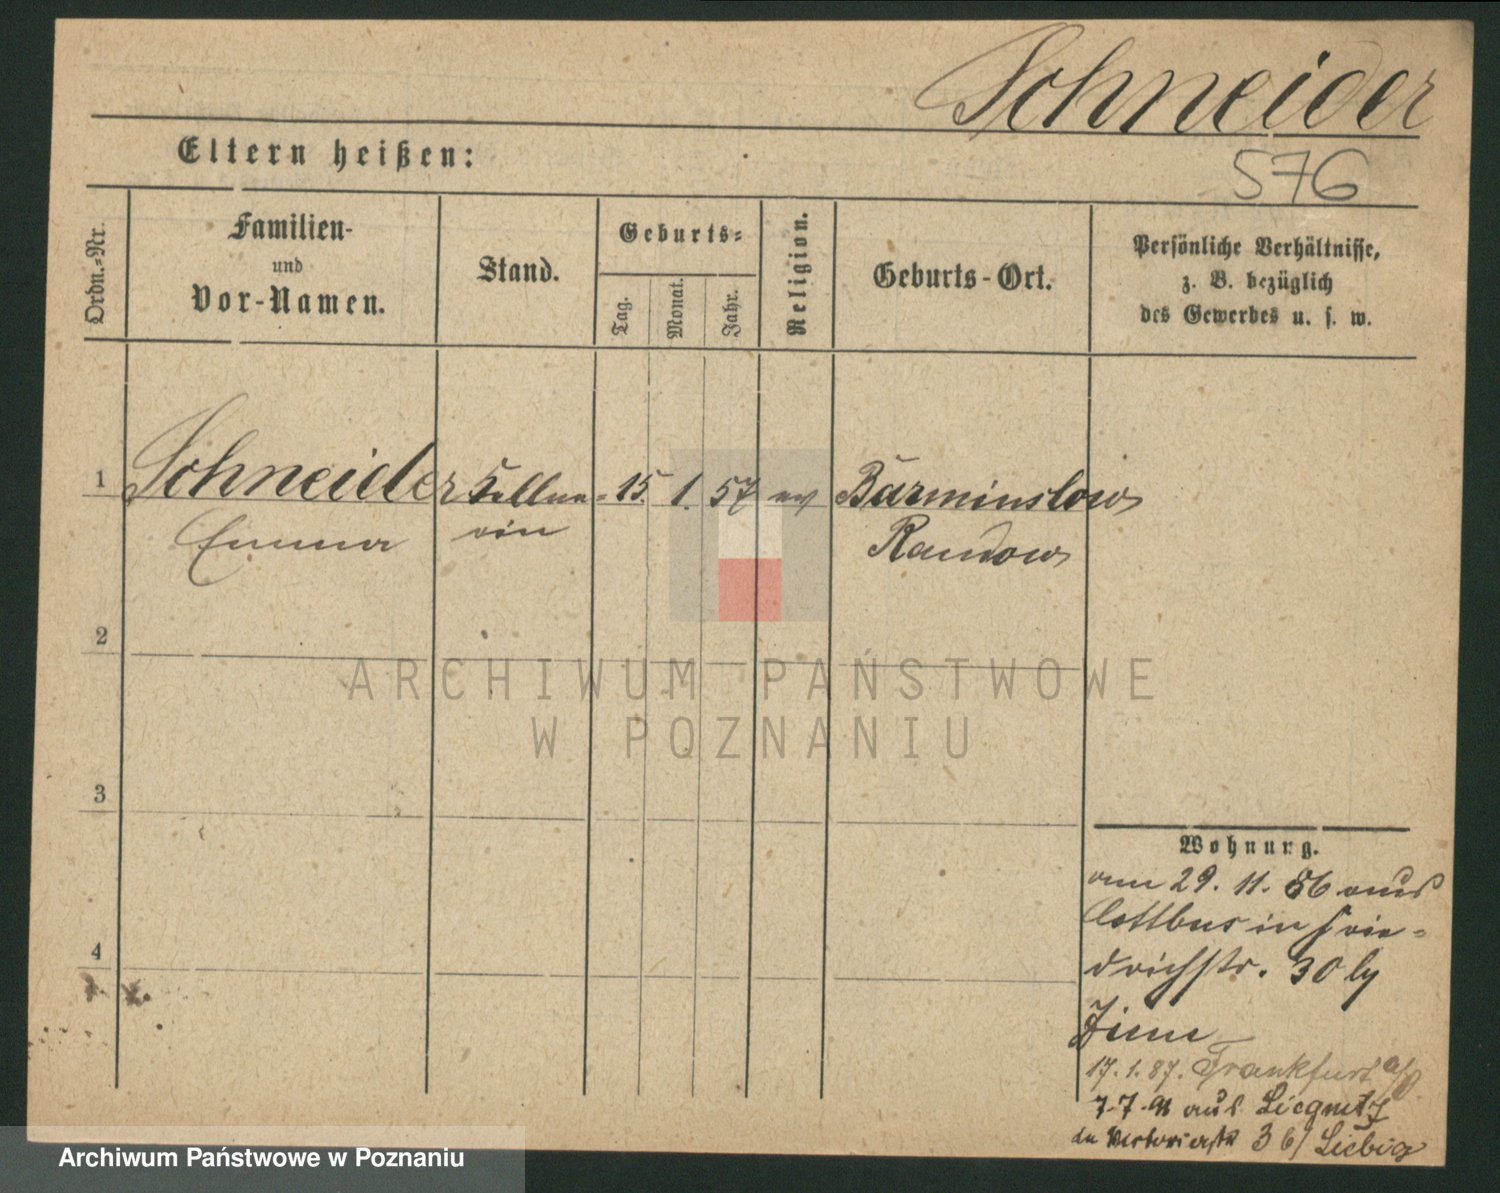 Schneider
576
Eltern heißen:
Ordn.-Nr.
Familien-
und
Vor-Namen.
Stand.
Geburts-
Tag.
Monat.
Jahr.
Religion.
Geburts-Ort.
Persönliche Verhältnisse,
z. B. bezüglich
des Gewerbes u. s. w.
1 Schneider Kellne- 15. 1. 57 ev Barminslow
Emma rin Randow
2
3
4
ARCHIWUM PAŃSTWOWE
W POZNANIU
Wohnung.
am 29. 11. 86 aus
Cottbus in Frie-
drichstr. 30 by
17. 1. 87. Frankfurt a/O
7.7.91 aus Liegnitz
in Victoriastr 36/ Liebig
Archiwum Państwowe w Poznaniu